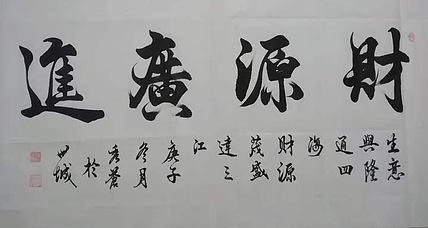 財源廣進
生意
興隆
通四
海
財源
茂盛
達三
江
庚子
冬月
於